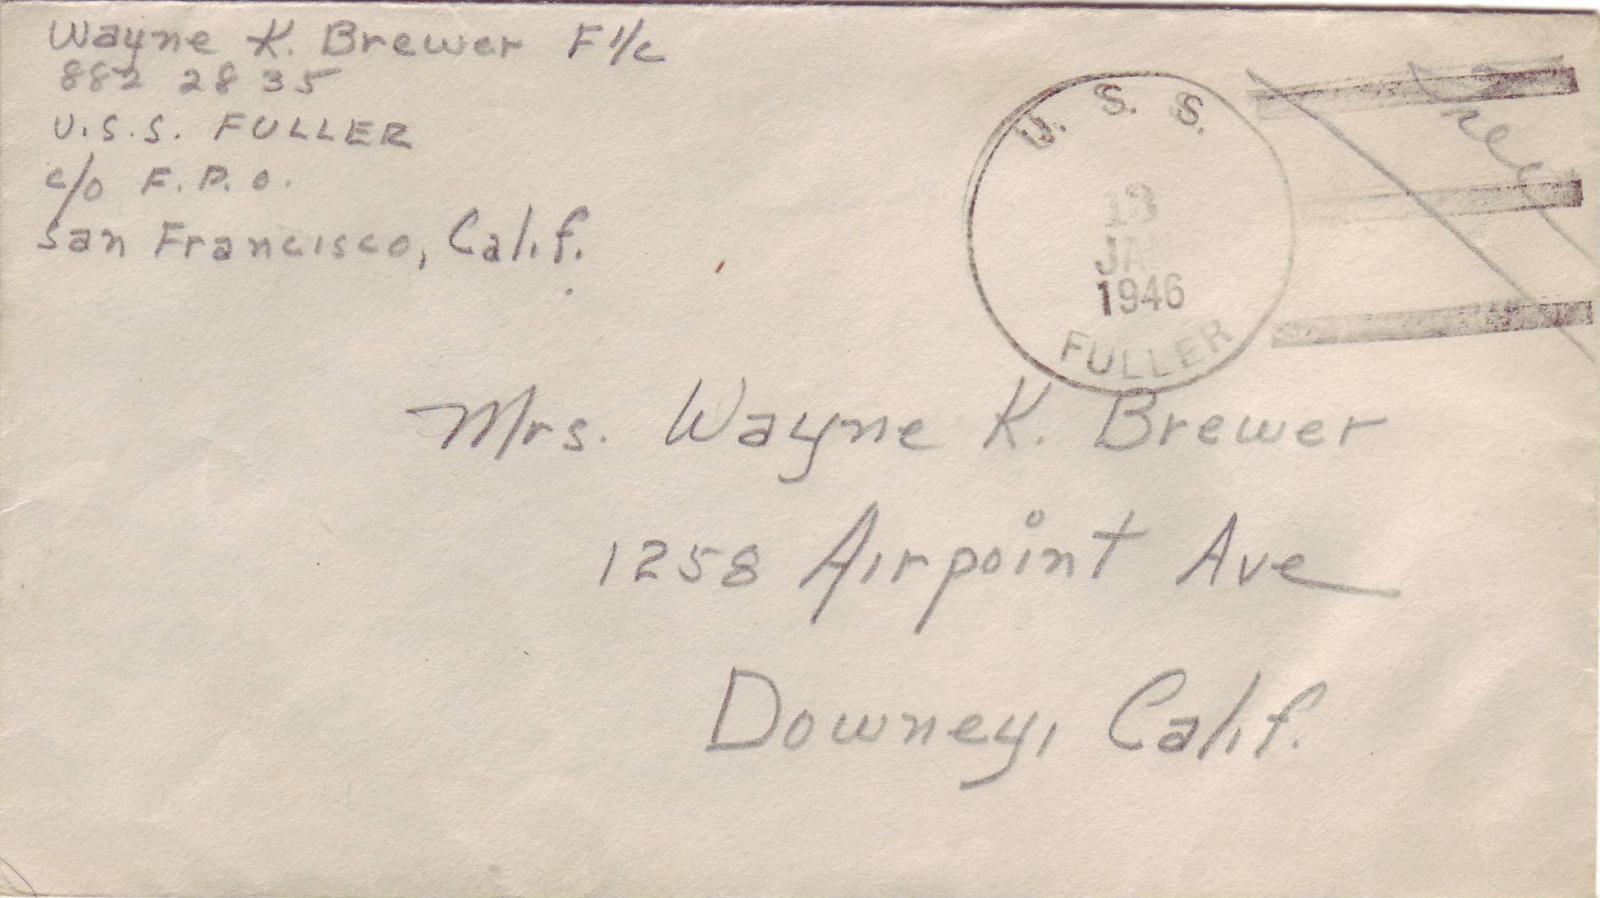 Wayne K. Brewer F1/c
882 28 35
U.S.S. FULLER
c/o F.P.O.
San Francisco, Calif.
U. S. S.
13
JAN
1946
FULLER
Free
Mrs. Wayne K. Brewer
1258 Airpoint Ave
Downey, Calif.